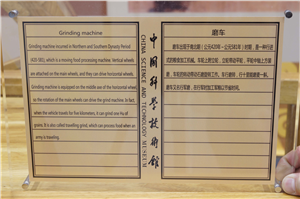 Grinding machine
Grinding machine occurred in Northern and Southern Dynasty Period
(420-581), which is a moving food processing machine. Vertical wheels
are attached on the main wheels, and they can drive horizontal wheels.
Grinding machine is equipped on the middle axe of the horizontal wheel,
so the rotation of the main wheels can drive the grind machine. In fact,
when the vehicle travels for five kilometers, it can grind one Hu of
grains. It is also called travelling grind, which can process food when an
army is traveling.
中国科学技术馆
CHINA SCIENCE AND TECHNOLOGY MUSEUM
磨车
磨车出现于南北朝(公元420年-公元581年)时期,是一种行进
式的粮食加工机械。车轮上附立轮,立轮带动平轮,平轮中轴上方装
磨,车轮的转动带动石磨旋转工作。车行磨转,行十里能磨麦一斛。
磨车又名行军磨,长行军时加工军粮以节省时间。